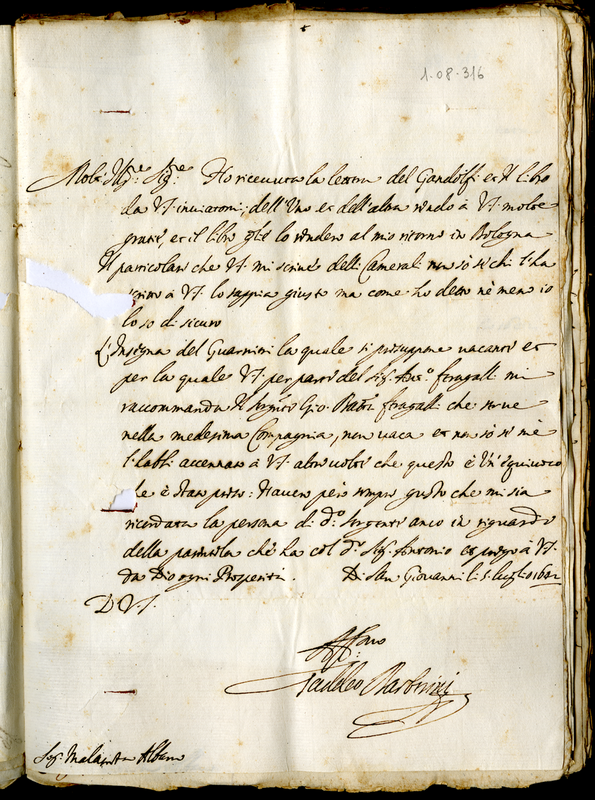 1-08-316
Molt' Ill.re Sig.re Ho riceuuta la lettera del Gandolfi et il libro
da VS inuiatomi; dell'Uno et dell'altra rendo à VS molte
gratie, et il libro glie lo renderò al mio ritorno in Bologna
Il particolare che VS mi scriue delli Camerali non sò se chi l'ha
scritto à VS lo sappia giusto ma come ho detto nè meno io
lo so di sicuro
L'Insegna del Guarnini la quale si presuppone uacante et
per la quale VS per parte del Sig. Ant.o feragalli mi
raccommanda il Sergente Gio Batt. feragalli che serue
nella medesima Compagnia, non uaca et non sò se me
l'habbi accennato à VS altre uolte che questo è un equiuoco
che è stato preso: Hauerò però sempre gusto che mi sia
ricordata la persona di d.o Sergente anco in riguardo
della parentela che ha col d.o Sig. Antonio et prego à VS
da Dio ogni Prosperità. Di San Giouanni li 5 luglio
D VS
Aff.mo
Taddeo Barberini
Sig. Malatesta Albani